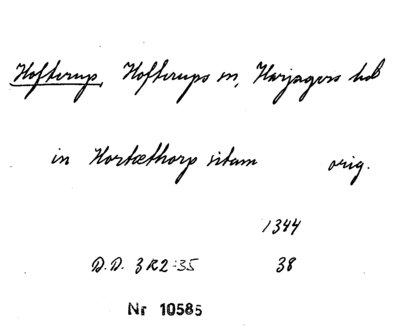 Hofterup, Hofterups sn, Harjagers hd
in Hortæthorp sitam orig.
1344
D.D. 3 R2:35 38
Nr 10585